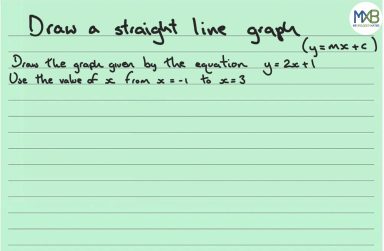 MXB
Draw a straight line graph
(y=mx+c)
Draw the graph given by the equation y=2x+1
Use the value of x from x=-1 to x=3